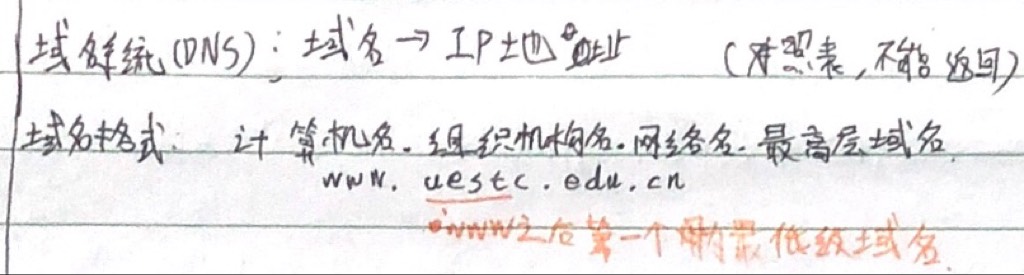 域名系统(DNS): 域名→IP地址 (对照表,不能返回)
域名格式: 计算机名.组织机构名.网络名.最高层域名.
www.uestc.edu.cn
www之后第一个为最低级域名.